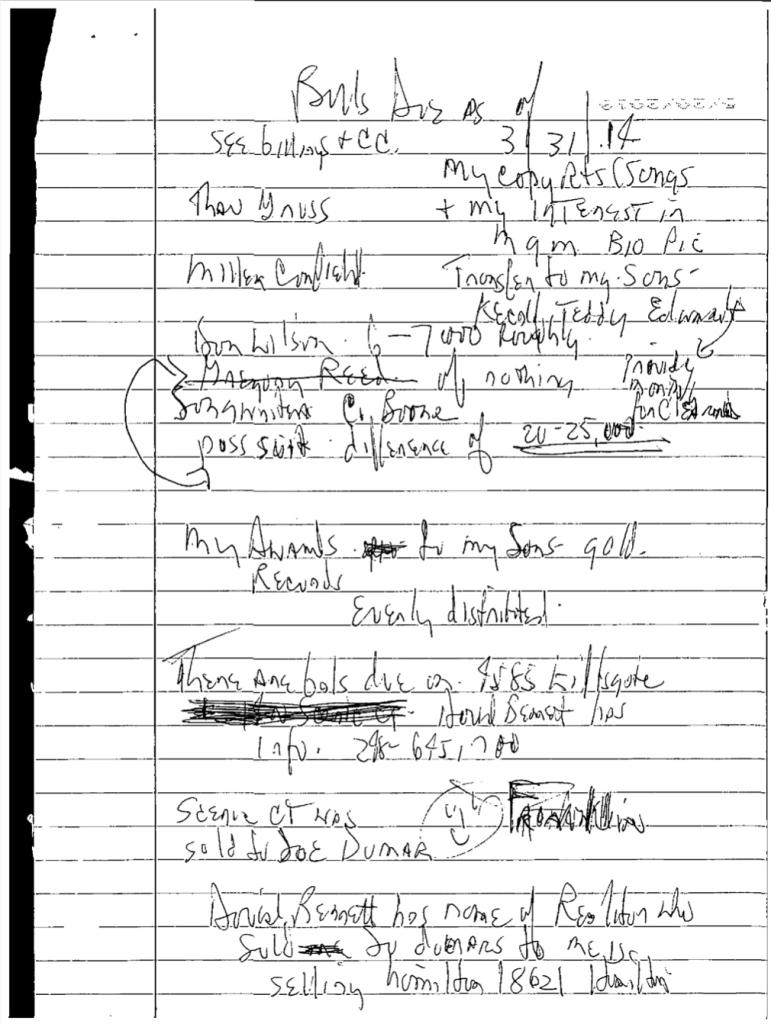 Bills Due as of
3/31/.14
See billings + CC.
My copy Rts (Songs
Thav Gnuss
+ my Interest in
m g m. Bio Pic
Miller Confield.
Transfer to my Sons-
Kecalf Teddy Edward
Don Wilson. 6-7000 Roughly.
Gregory Reed. of nothing
provide
for
songwriter C. Boone
poss suit. difference of 20-25,000.
My Awards to my Sons- gold.
Records
Evenly distributed.
There are bals due on. 4585 Killsgote
David Bennett has
info. 248-645,1700
Scenic CT was
sold to Joe Dumar
David Bennett has name of Realtor who
sold Dumars to me is
selling hamilton 18621 Hamilton